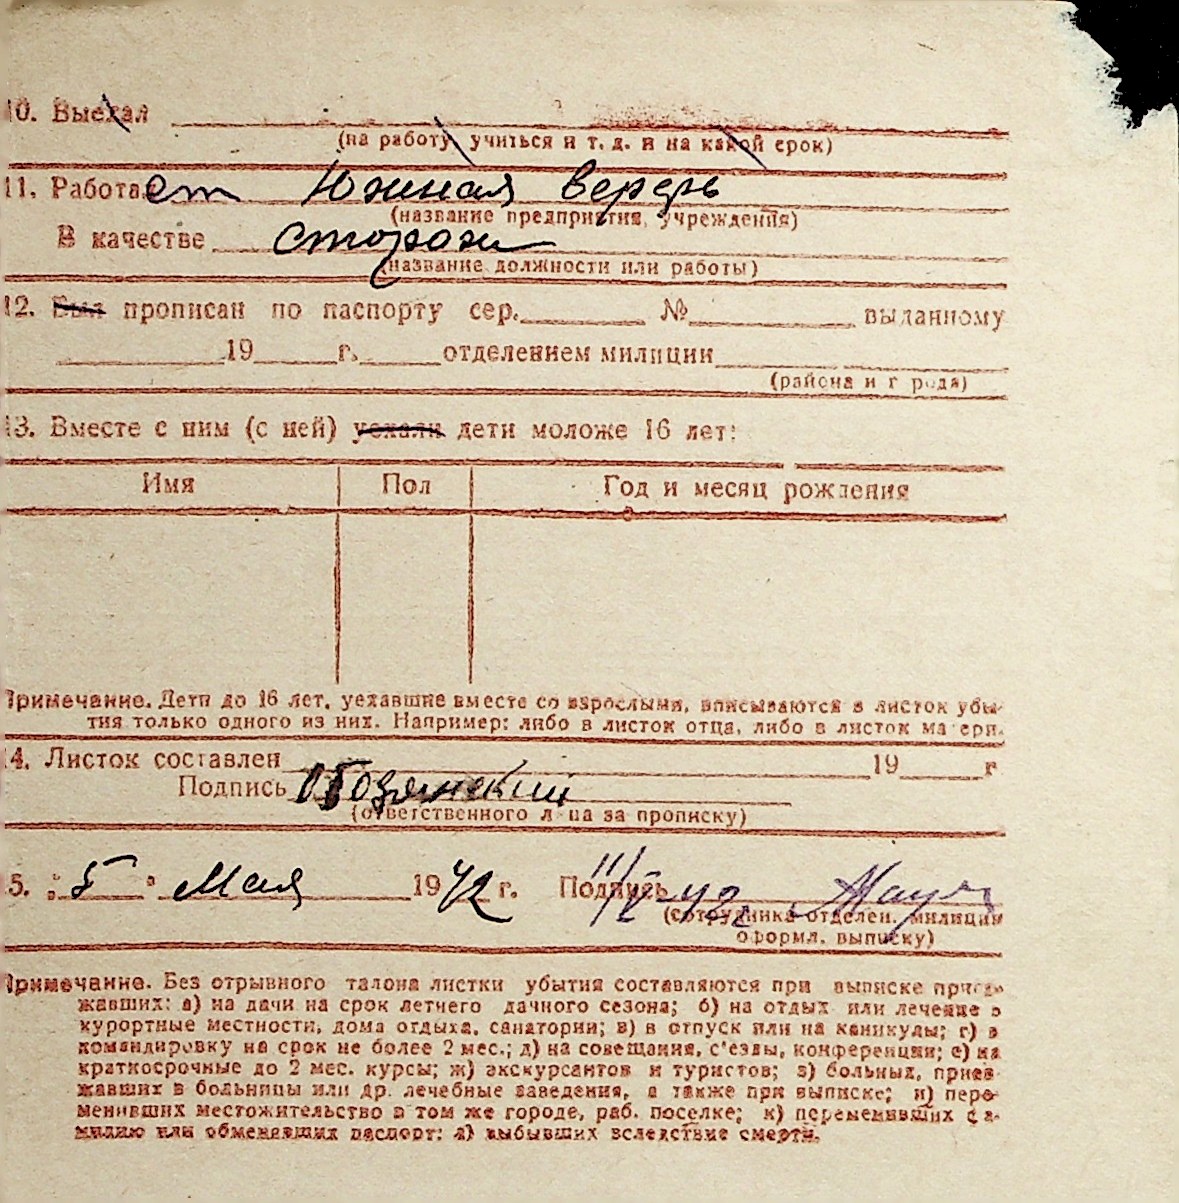 10. Выехал
(на работу, учиться и т. д. и на какой срок)
11. Работает Южная верфь
(название предприятия, учреждения)
В качестве сторож
(название должности или работы)
12. Был прописан по паспорту сер. № выданному
19 г. отделением милиции
(района и города)
13. Вместе с ним (с ней) уехали дети моложе 16 лет:
Имя Пол Год и месяц рождения
Примечание. Дети до 16 лет, уехавшие вместе со взрослыми, вписываются в листок убы-
тия только одного из них. Например: либо в листок отца, либо в листок матери.
14. Листок составлен 19 г
Подпись
(ответственного лица за прописку)
15. "5" Мая 1942 г. Подпись 11/V-42г.
(сотрудника отделен. милиции
оформл. выписку)
Примечание. Без отрывного талона листки убытия составляются при выписке приез-
жавших: а) на дачи на срок летнего дачного сезона; б) на отдых или лечение в
курортные местности, дома отдыха, санатории; в) в отпуск или на каникулы; г) в
командировку на срок не более 2 мес.; д) на совещания, с'езды, конференции; е) на
краткосрочные до 2 мес. курсы; ж) экскурсантов и туристов; з) больных, приез-
жавших в больницы или др. лечебные заведения, а также при выписке; и) пере-
менивших местожительство в том же городе, раб. поселке; к) переменивших фа-
милию или обменявших паспорт; л) выбывших вследствие смерти.